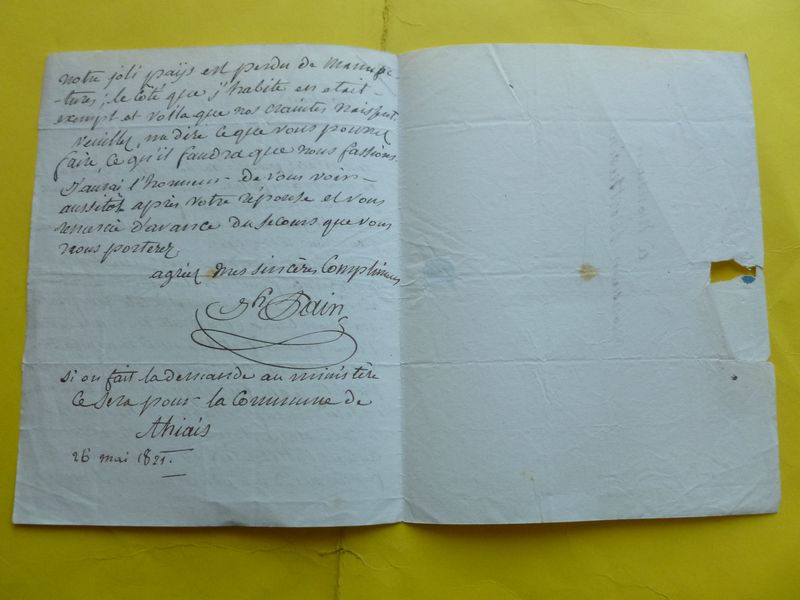 notre joli païs est perdu de manufac-
tures, le côté que j'habite en etait
exempt et voila que nos craintes naissent
veuillez me dire ce que vous pourrez
faire, ce qu'il faudra que nous fassions
j'aurai l'honneur de vous voir
aussitôt après votre réponse et vous
remercie d'avance du secours que vous
nous porterez
agréez mes sincères Complimens
Pain
si on fait la demande au ministère
ce sera pour la Commune de
thiais
26 mai 1821.